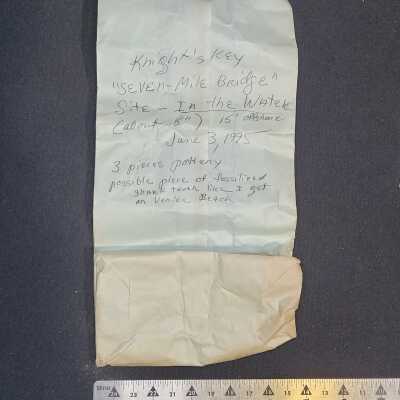 Knight's Key
"Seven-Mile Bridge"
Site - In the Water
(about 8") 15' offshore
June 3, 1995
3 pieces pottery
possible piece of fossilized
shark tooth like I got
on Venice Beach